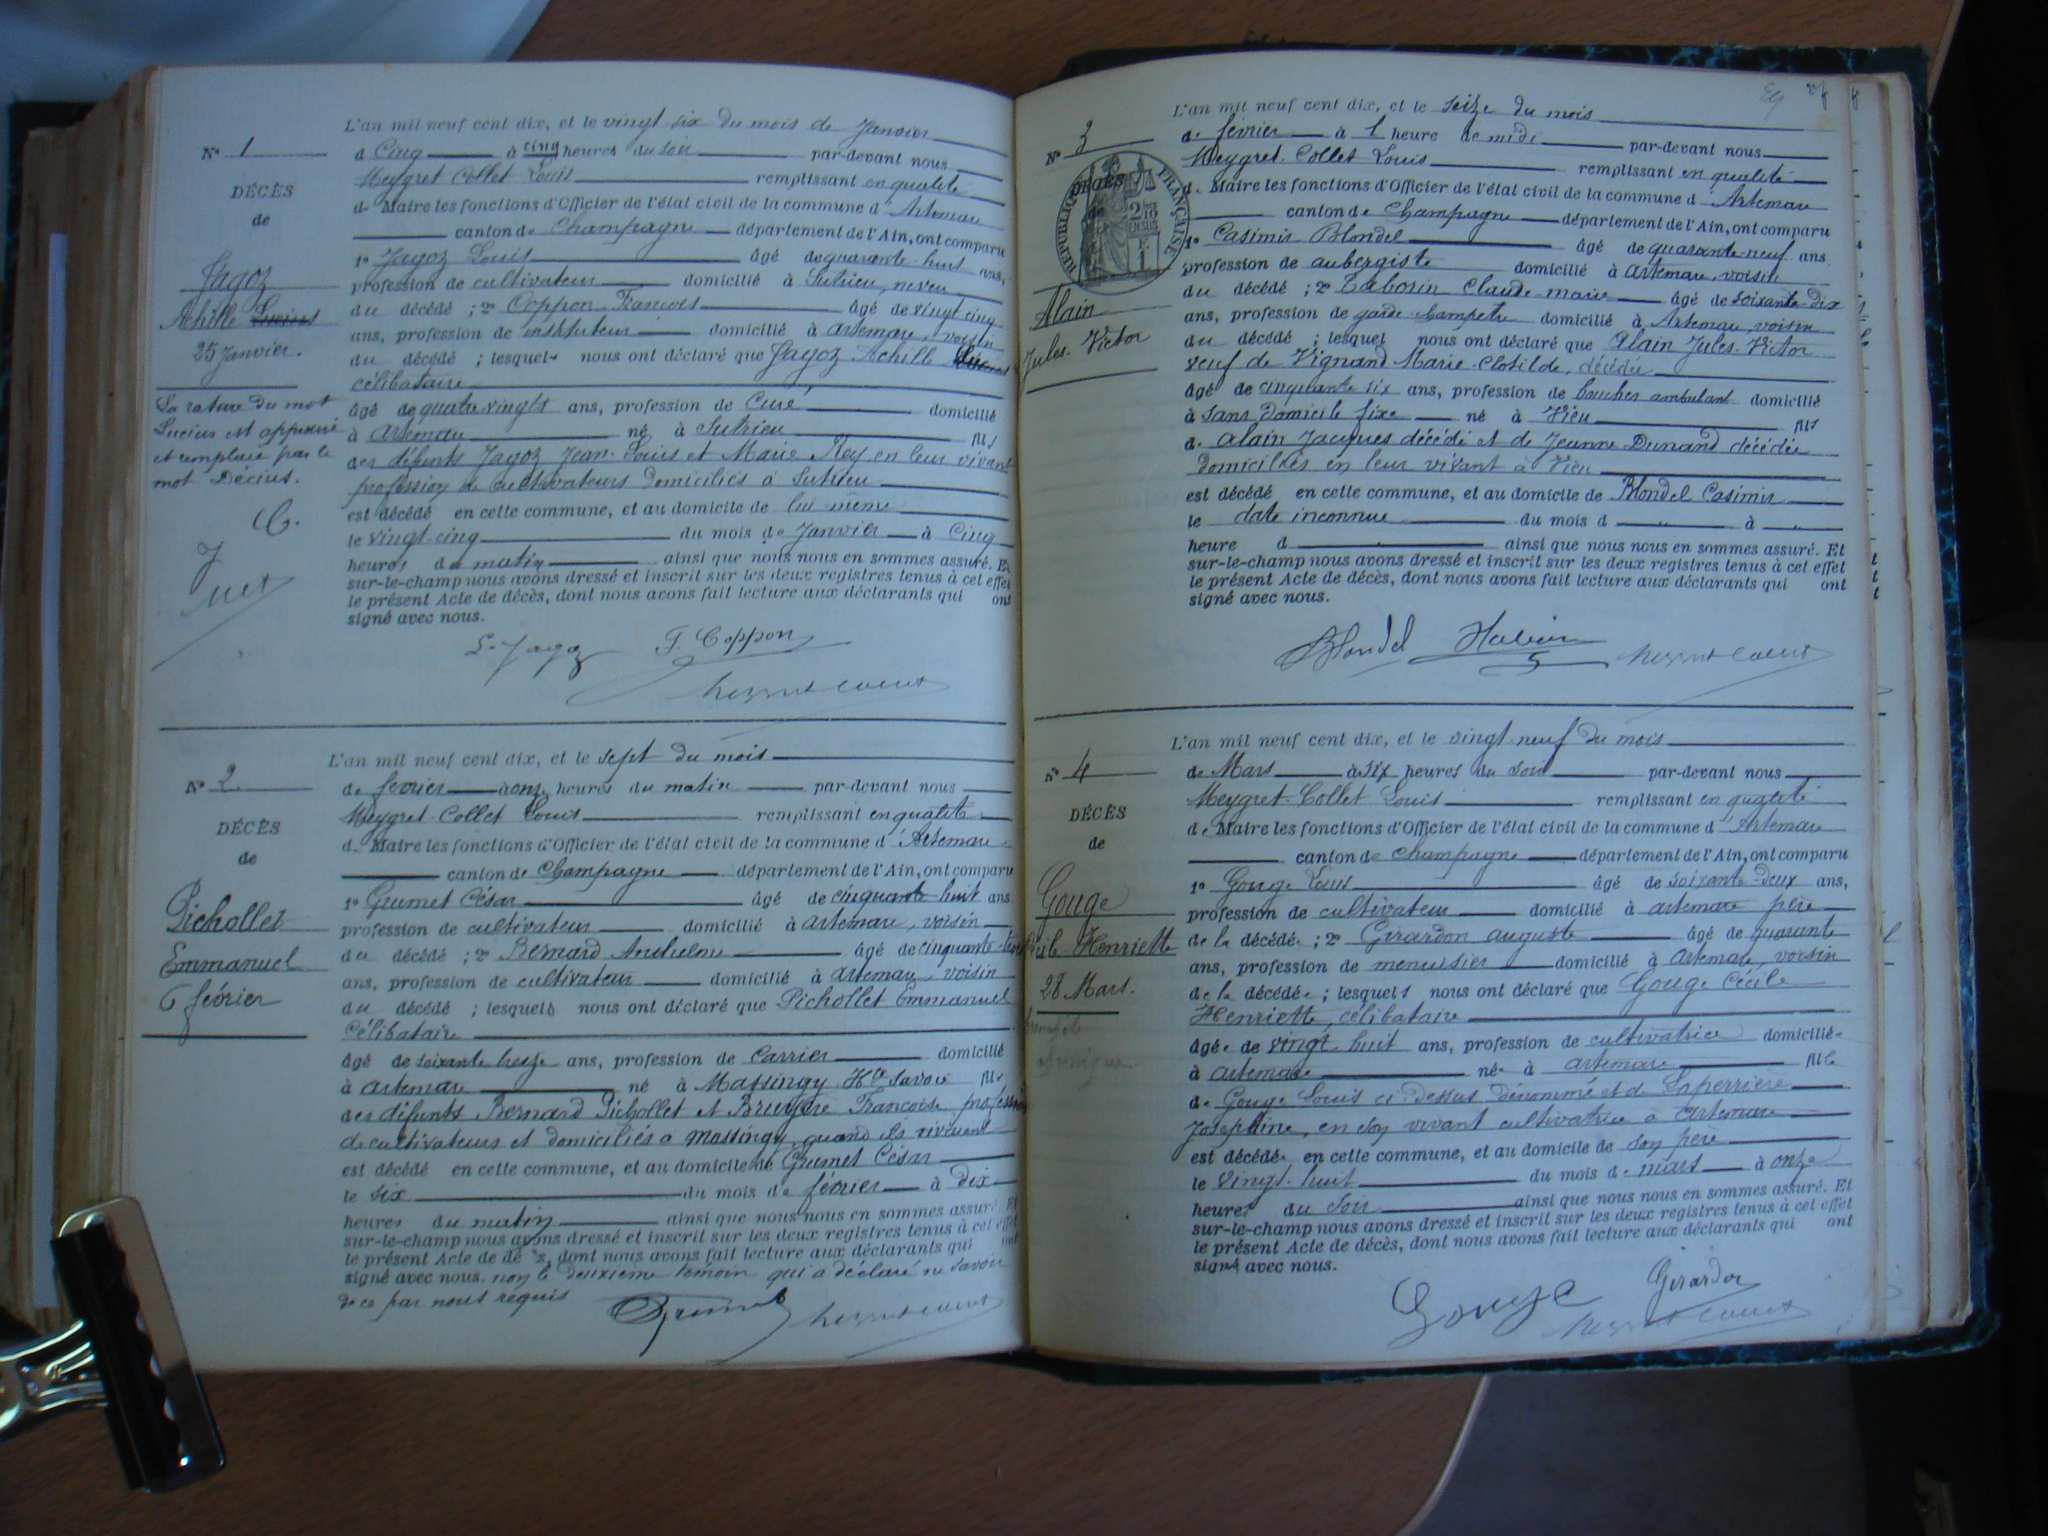 L'an mil neuf cent dix, et le vingt six du mois de Janvier
N° 1
à Cinq à cinq heures du soir par-devant nous
Meygret Collet Louis remplissant en qualité
DÉCÈS
de Maire les fonctions d'Officier de l'état civil de la commune d'Artemare
de
canton de Champagne département de l'Ain, ont comparu
1° Jagoz Louis âgé de quarante huit ans,
Jagoz
profession de cultivateur domicilié à Sutrieu, neveu
Achille Lucius
du décédé ; 2° Coppon François âgé de vingt cinq
25 Janvier.
ans, profession de instituteur domicilié à Artemare, voisin
du décédé ; lesquels nous ont déclaré que Jagoz Achille Lucius
célibataire
La rature du mot
Lucius est approuvé
et remplacé par le
mot Décius.
C.
Juet
âgé de quatre vingts ans, profession de Curé domicilié
à Artemare né à Sutrieu fils
des défunts Jagoz Jean-Louis et Marie Rey en leur vivant
profession de cultivateurs domiciliés à Sutrieu
est décédé en cette commune, et au domicile de lui même
le vingt cinq du mois de Janvier à Cinq
heures du matin ainsi que nous nous en sommes assuré. Et
sur-le-champ nous avons dressé et inscrit sur les deux registres tenus à cet effet
le présent Acte de décès, dont nous avons fait lecture aux déclarants qui ont
signé avec nous.
L. Jagoz F. Coppon
L'an mil neuf cent dix, et le sept du mois
N° 2
de février à onze heures du matin par-devant nous
Meygret-Collet Louis remplissant en qualité
DÉCÈS
de Maire les fonctions d'Officier de l'état civil de la commune d'Artemare
de
canton de Champagne département de l'Ain, ont comparu
1° Grumet César âgé de cinquante huit ans
Pichollet
profession de cultivateur domicilié à Artemare, voisin
Emmanuel
du décédé ; 2° Bernard Anthelme âgé de cinquante
6 février
ans, profession de cultivateur domicilié à Artemare voisin
du décédé ; lesquels nous ont déclaré que Pichollet Emmanuel
Célibataire
âgé de soixante treize ans, profession de Carrier domicilié
à Artemare né à Massingy Hte Savoie fils
des défunts Bernard Pichollet et Bruyère Françoise profession
de cultivateurs et domiciliés à Massingy quand ils vivaient
est décédé en cette commune, et au domicile de Grumet César
le six du mois de février à dix
heures du matin ainsi que nous nous en sommes assuré. Et
sur-le-champ nous avons dressé et inscrit sur les deux registres tenus à cet effet
le présent Acte de décès, dont nous avons fait lecture aux déclarants qui ont
signé avec nous. non le deuxième témoin qui a déclaré ne savoir
de ce par nous requis
Grumet
L'an mil neuf cent dix, et le seize du mois
N° 3
de février à 1 heure de midi par-devant nous
Meygret-Collet Louis remplissant en qualité
DÉCÈS
de
RÉPUBLIQUE FRANÇAISE
2/10 EN SUS
1 F
de Maire les fonctions d'Officier de l'état civil de la commune d'Artemare
canton de Champagne département de l'Ain, ont comparu
1° Casimir Blondel âgé de quarante-neuf ans
profession de aubergiste domicilié à Artemare, voisin
Alain
du décédé ; 2° Taborin Claude-marie âgé de soixante-dix
Jules-Victor
ans, profession de garde-champêtre domicilié à Artemare, voisin
du décédé ; lesquel nous ont déclaré que Alain Jules-Victor
veuf de Vignand Marie-Clotilde, décédée
âgé de cinquante six ans, profession de boucher ambulant domicilié
à sans domicile fixe né à Vieu fils
de Alain Jacques décédé et de Jeanne Dunand décédée
domiciliés en leur vivant à Vieu
est décédé en cette commune, et au domicile de Blondel Casimir
le date inconnue du mois d " à "
heure d ainsi que nous nous en sommes assuré. Et
sur-le-champ nous avons dressé et inscrit sur les deux registres tenus à cet effet
le présent Acte de décès, dont nous avons fait lecture aux déclarants qui ont
signé avec nous.
Blondel
L'an mil neuf cent dix, et le vingt-neuf du mois
N° 4
de Mars à six heures du soir par-devant nous
Meygret-Collet Louis remplissant en qualité
DÉCÈS
de Maire les fonctions d'Officier de l'état civil de la commune d'Artemare
de
canton de Champagne département de l'Ain, ont comparu
1° Gouge Louis âgé de soixante-deux ans,
Gouge
profession de cultivateur domicilié à Artemare père
Cécile Henriette
de la décédée ; 2° Girardon auguste âgé de quarante
ans, profession de menuisier domicilié à Artemare, voisin
28 Mars.
de la décédée ; lesquels nous ont déclaré que Gouge Cécile
Henriette, célibataire
âgée de vingt huit ans, profession de cultivatrice domiciliée
à Artemare née à Artemare fille
de Gouge Louis ci-dessus dénommé et de Laperrière
Joséphine, en son vivant cultivatrice à Artemare
est décédée en cette commune, et au domicile de son père
le vingt-huit du mois de mars à onze
heures du soir ainsi que nous nous en sommes assuré. Et
sur-le-champ nous avons dressé et inscrit sur les deux registres tenus à cet effet
le présent Acte de décès, dont nous avons fait lecture aux déclarants qui ont
signé avec nous.
Gouge Girardon